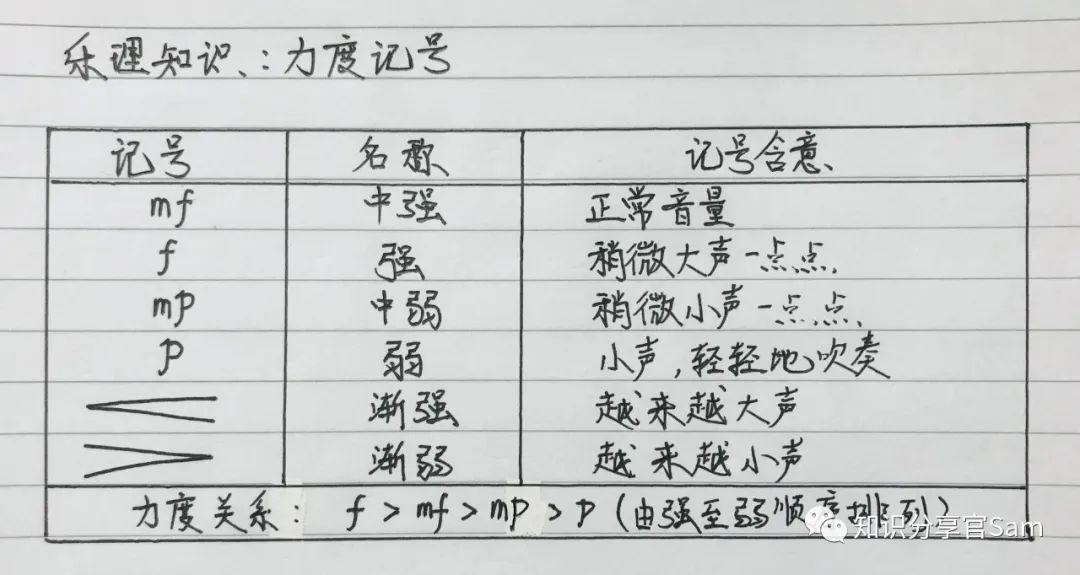 乐理知识：力度记号
记号 名称 记号含意
mf 中强 正常音量
f 强 稍微大声一点点
mp 中弱 稍微小声一点点
p 弱 小声，轻轻地吹奏
渐强 越来越大声
渐弱 越来越小声
力度关系： f > mf > mp > p (由强至弱顺序排列)
知识分享官Sam